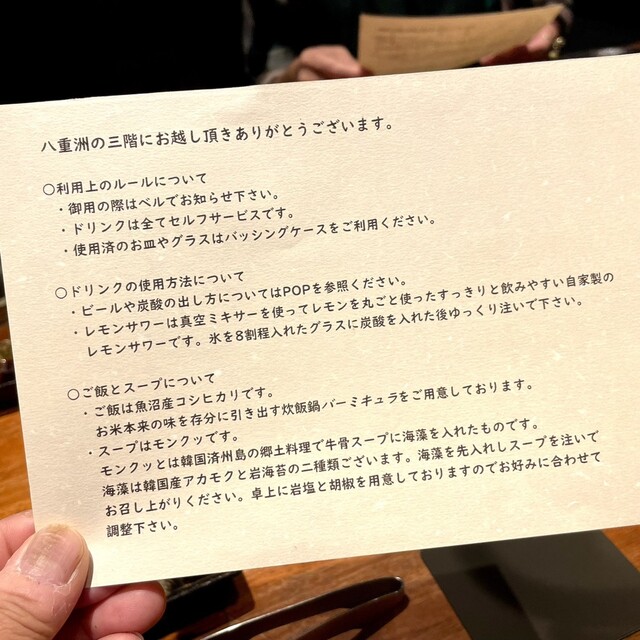 八重洲の三階にお越し頂きありがとうございます。
○利用上のルールについて
・御用の際はベルでお知らせ下さい。
・ドリンクは全てセルフサービスです。
・使用済のお皿やグラスはバッシングケースをご利用ください。
○ドリンクの使用方法について
・ビールや炭酸の出し方についてはPOPを参照ください。
・レモンサワーは真空ミキサーを使ってレモンを丸ごと使ったすっきりと飲みやすい自家製の
レモンサワーです。氷を8割程入れたグラスに炭酸を入れた後ゆっくり注いで下さい。
○ご飯とスープについて
・ご飯は魚沼産コシヒカリです。
お米本来の味を存分に引き出す炊飯鍋バーミキュラをご用意しております。
・スープはモンクッです。
モンクッとは韓国済州島の郷土料理で牛骨スープに海藻を入れたものです。
海藻は韓国産アカモクと岩海苔の二種類ございます。海藻を先入れしスープを注いで
お召し上がりください。卓上に岩塩と胡椒を用意しておりますのでお好みに合わせて
調整下さい。